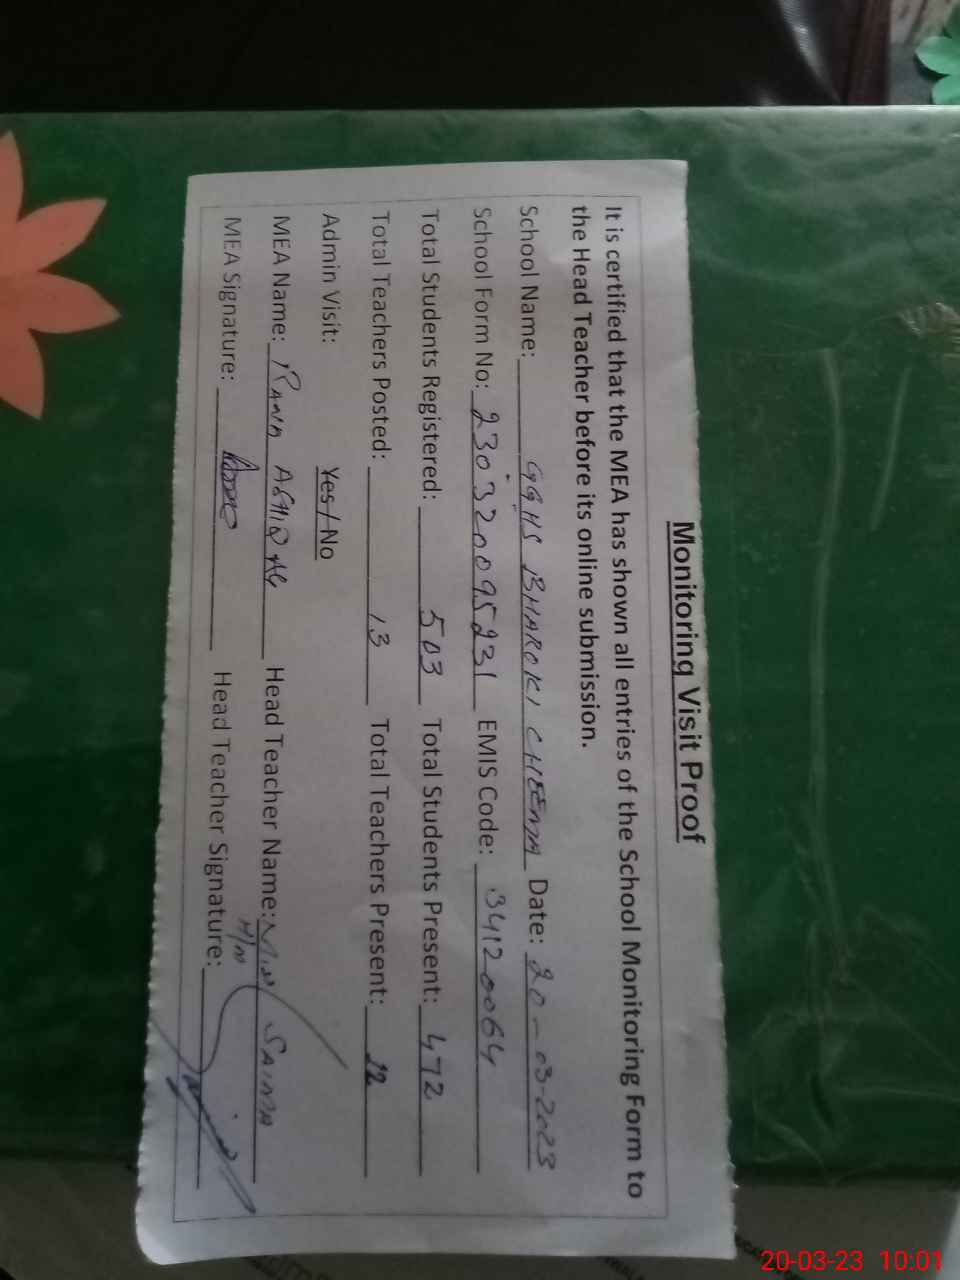 Monitoring Visit Proof
It is certified that the MEA has shown all entries of the School Monitoring Form to
the Head Teacher before its online submission.
School Name: GGHS BHAROKI CHEEMA Date: 20-03-2023
School Form No: 230320095231 EMIS Code: 34120064
Total Students Registered: 503 Total Students Present: 472
Total Teachers Posted: 13 Total Teachers Present: 12
Admin Visit: Yes / No
MEA Name: RANA ASHIQ Ali Head Teacher Name: SAIMA
MEA Signature: Head Teacher Signature:
20-03-23 10:01